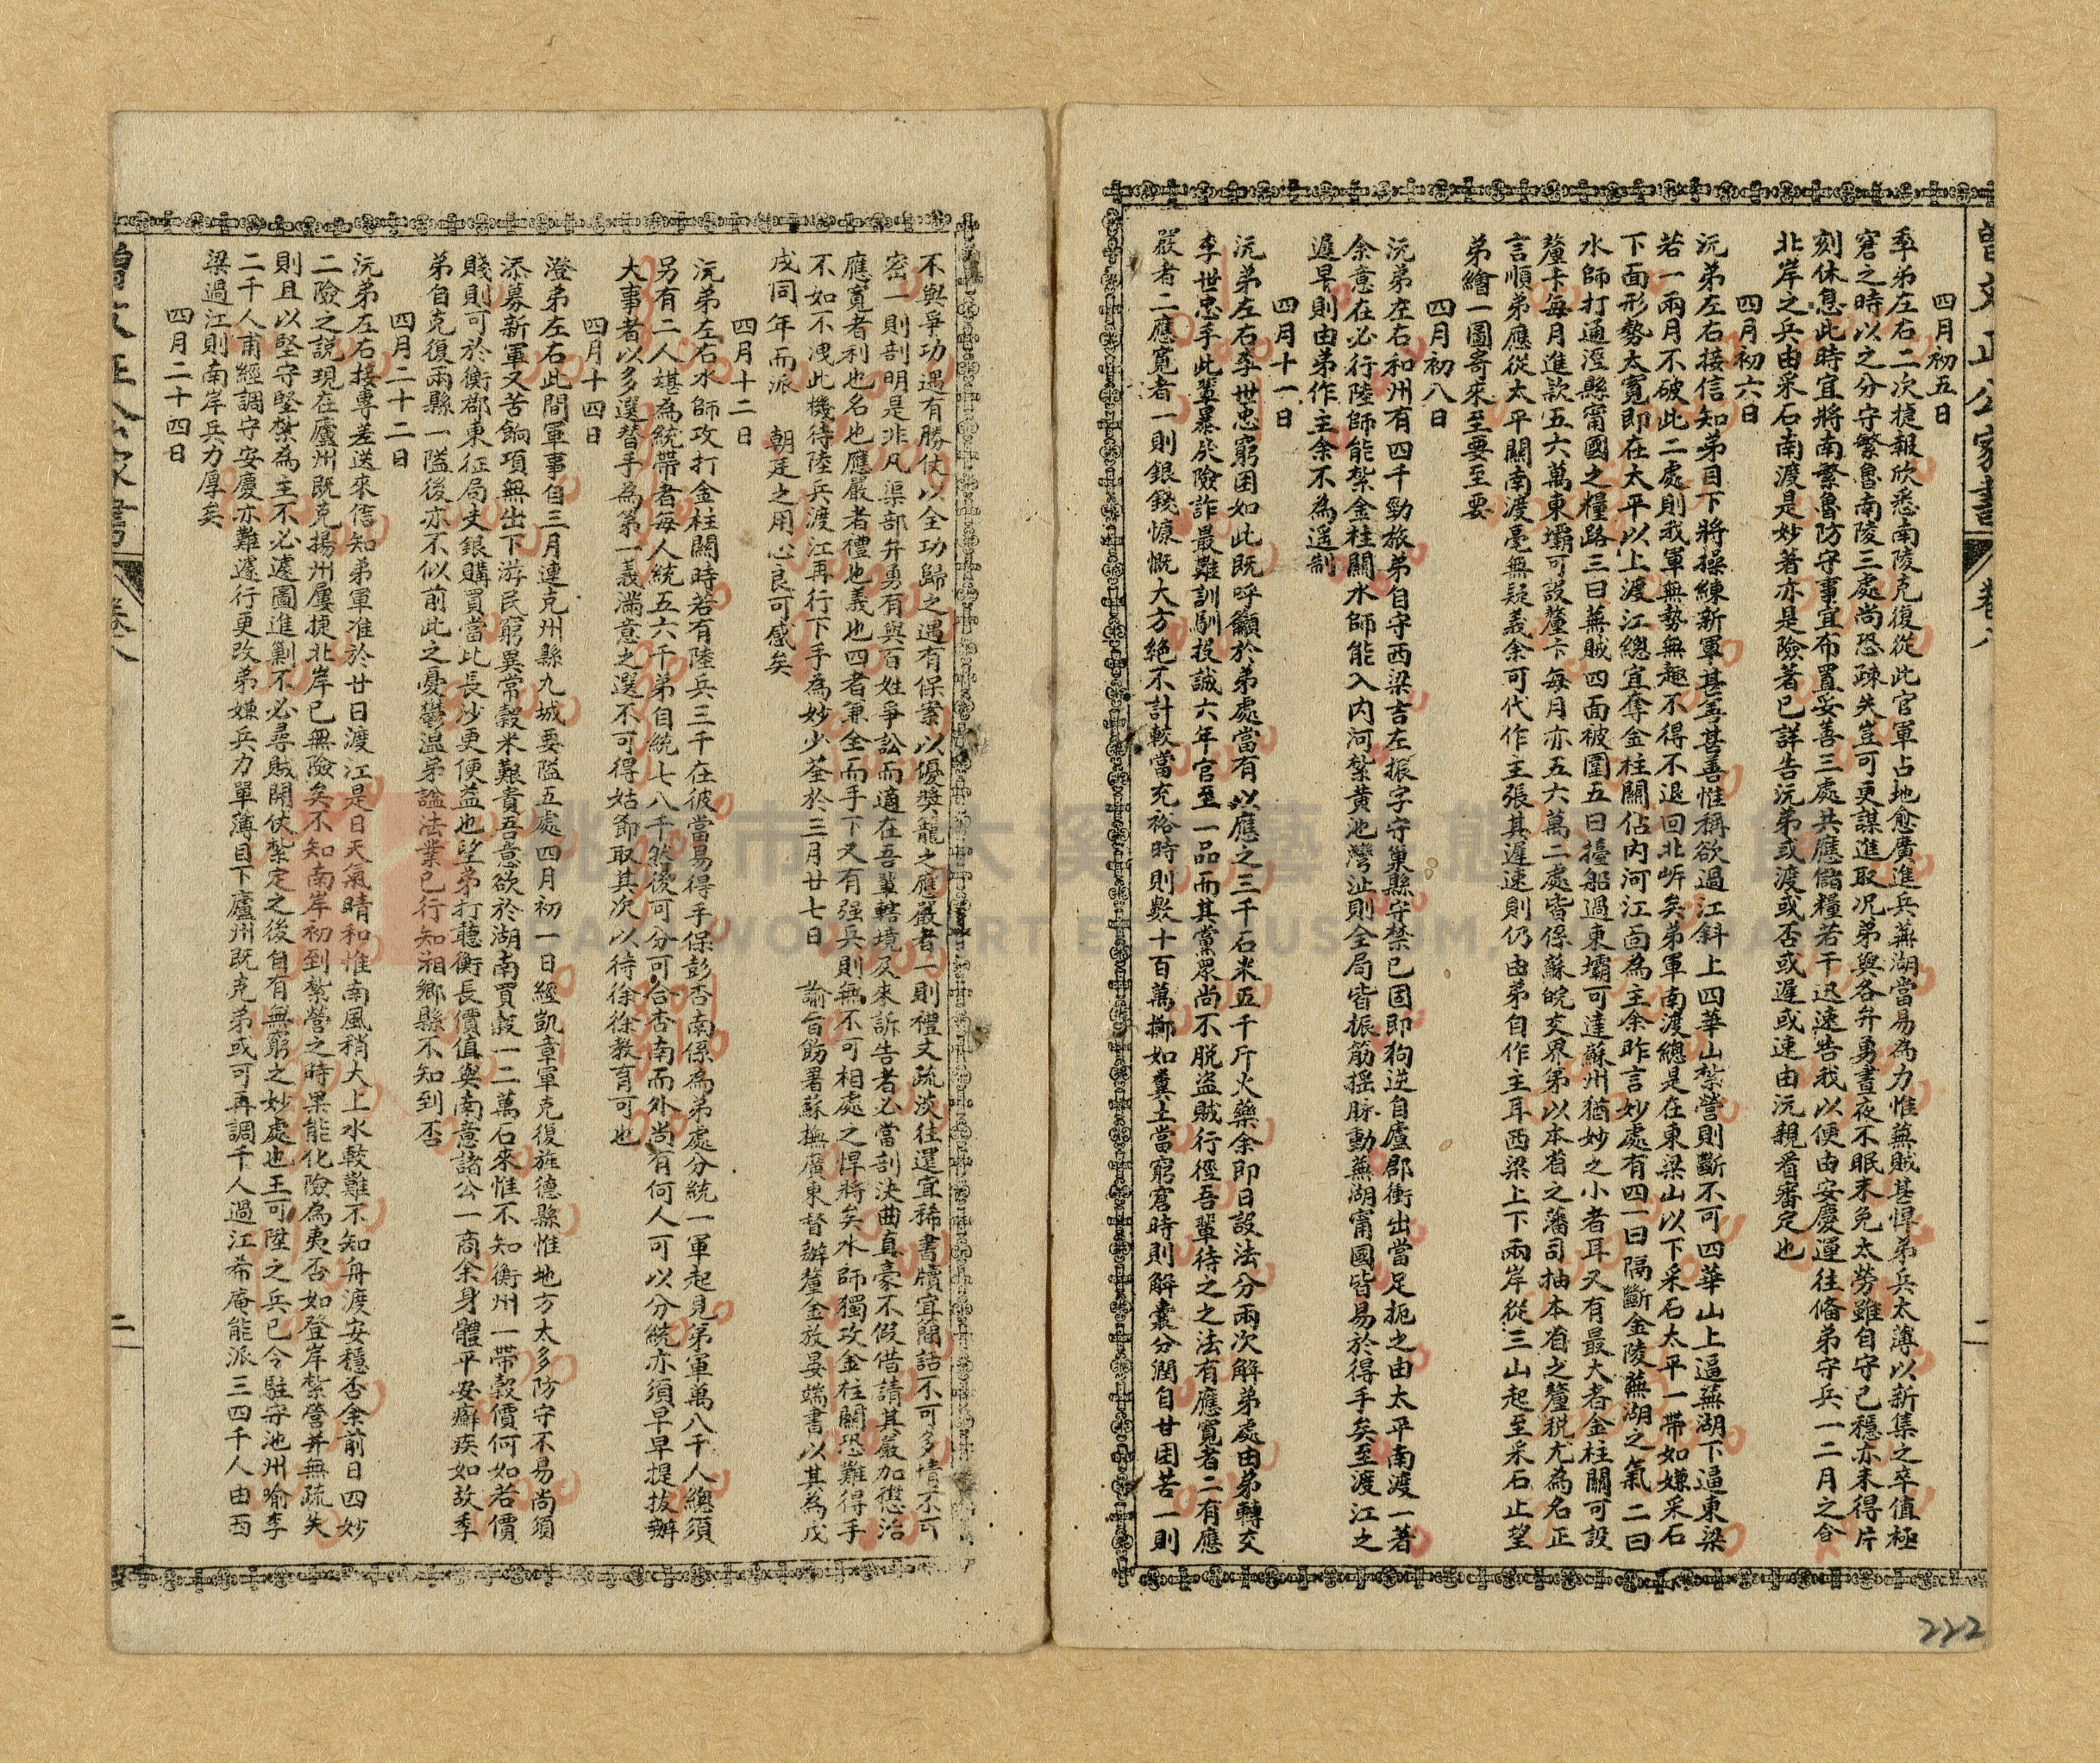 曾文正公家書 卷八
四月初五日
季弟左右二次捷報欣悉南陵克復從此官軍占地愈廣進兵蕪湖當易為力惟蕪賊甚悍弟兵太薄以新集之卒值極
窘之時以之分守繁魯南陵三處尚恐疎失豈可更謀進取况弟與各弁勇晝夜不眠未免太勞雖自守已穩亦未得片
刻休息此時宜將南繁魯防守事宜布置妥善三處共應儲糧若干迅速告我以便由安慶運往俻弟守兵一二月之食
北岸之兵由采石南渡是妙著亦是險著已詳告沅弟或渡或否或遲或速由沅親看審定也
四月初六日
沅弟左右接信知弟目下將操練新軍甚善甚善惟稱欲過江斜上四華山紮營則斷不可四華山上逼蕪湖下逼東梁
若一兩月不破此二處則我軍無勢無趣不得不退回北岍矣弟軍南渡總是在東梁山以下采石太平一帶如嫌采石
下面形勢太寬即在太平以上渡江總宜奪金柱關佔內河江面為主余昨言妙處有四一曰隔斷金陵蕪湖之氣二曰
水師打通涇縣甯國之糧路三曰蕪賊四面被圍五曰擡船過東壩可達蘇州猶妙之小者耳又有最大者金柱關可設
釐卡每月進款五六萬東壩可設釐卡每月亦五六萬二處皆係蘇皖交界弟以本省之藩司抽本省之釐稅尤為名正
言順弟應從太平關南渡毫無疑義余可代作主張其遲速則仍由弟自作主耳西梁上下兩岸從三山起至采石止望
弟繪一圖寄來至要至要
四月初八日
沅弟左右和州有四千勁旅弟自守西梁吉左振字守巢縣守禁已固即狗逆自廬郡衝出當足扼之由太平南渡一著
余意在必行陸師能紮金柱關水師能入內河紮黃池灣沚則全局皆振筋搖脉動蕪湖甯國皆易於得手矣至渡江之
遲早則由弟作主余不為遥制
四月十一日
沅弟左右李世忠窮困如此既呼籲於弟處當有以應之三千石米五千斤火藥余即日設法分兩次解弟處由弟轉交
李世忠手此輩暴戾險詐最難訓馴投誠六年官至一品而其黨眾尚不脫盜賊行徑吾輩待之之法有應寬者二有應
嚴者二應寬者一則銀錢慷慨大方絕不計較當充裕時則數十百萬擲如糞土當窮窘時則解囊分潤自甘困苦一則
不與爭功遇有勝仗以全功歸之遇有保案以優獎寵之應嚴者一則禮文疏淡往還宜稀書牘宜簡話不可多情不可
密一則剖明是非凡渠部弁勇有與百姓爭訟而適在吾輩轄境及來訴告者必當剖決曲直毫不假借請其嚴加懲治
應寬者利也名也應嚴者禮也義也四者兼全而手下又有强兵則無不可相處之悍將矣水師獨攻金柱關恐難得手
不如不洩此機待陸兵渡江再行下手為妙少荃於三月廿七日 諭旨飭署蘇撫廣東督辦釐金放晏端書以其為戊
戌同年而派 朝廷之用心良可感矣
四月十二日
沅弟左右水師攻打金柱關時若有陸兵三千在彼當易得手保彭否南係為弟處分統一軍起見弟軍萬八千人總須
另有二人堪為統帶者每人統五六千弟自統七八千然後可分可合否南而外尚有何人可以分統亦須早早提拔辦
大事者以多選替手為第一義滿意之選不可得姑節取其次以待徐徐教育可也
四月十四日
澄弟左右此間軍事自三月連克州縣九城要隘五處四月初一日經凱章軍克復旌德縣惟地方太多防守不易尚須
添募新軍又苦餉項無出下游民窮異常榖米艱貴吾意欲於湖南買榖一二萬石來惟不知衡州一帶榖價何如若價
賤則可於衡郡東征局支銀購買當此長沙更便益也望弟打聽衡長價值與南意諸公一商余身體平安癬疾如故季
弟自克復兩縣一隘後亦不似前此之憂鬱温弟諡法業已行知湘鄉縣不知到否
四月二十二日
沅弟左右接專差送來信知弟軍准於廿日渡江是日天氣晴和惟南風稍大上水較難不知舟渡安穩否余前日四妙
二險之説現在廬州既克揚州屢捷北岸已無險矣不知南岸初到紮營之時果能化險為夷否如登岸紮營并無疏失
則且以堅守堅紮為主不必遽圖進剿不必尋賊開仗紮定之後自有無窮之妙處也王可陞之兵已令駐守池州喻李
二千人甫經調守安慶亦難遽行更改弟嫌兵力單薄目下廬州既克弟或可再調千人過江希庵能派三四千人由西
梁過江則南岸兵力厚矣
四月二十四日
曾文正公家書 卷八 二
222